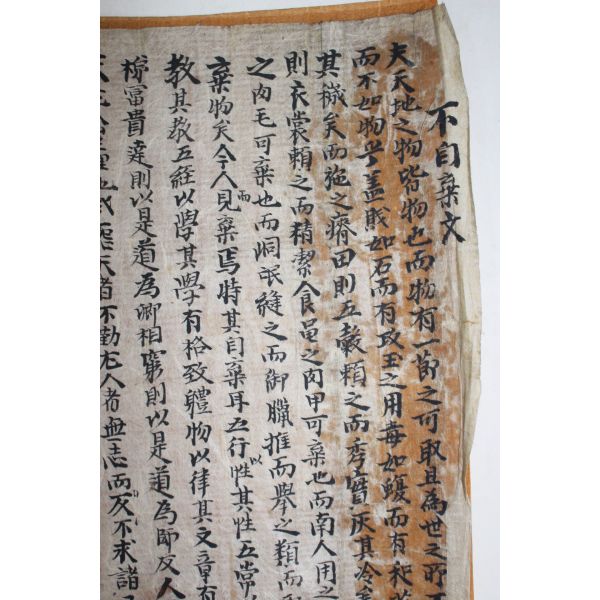 不自棄文
夫天地之物皆物也而物有一節之可取且為世之所
而不如物乎盖賎如石而有攻玉之用毒如蝮而有和
其穢矣而施之瘠田則五穀賴之而秀實灰其冷
則衣裳賴之而精潔食黽之肉甲可棄也而南人用之
之肉毛可棄也而峒氓縫之而御臘推而擧之類而
棄物矣今人而見棄焉特其自棄耳五行以性其性五常
教其敎五経以學其學有格致軆物以律其文章有
梯冨貴達則以是道為卿相窮則以是道為師友人
也哉 天者不勤尤人者無志而反不求諸